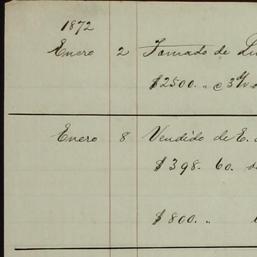 1872
Enero 2 Tomado de
$2500. " @ 3
Enero 8 Vendido de E.
$398. 60.
$800. "